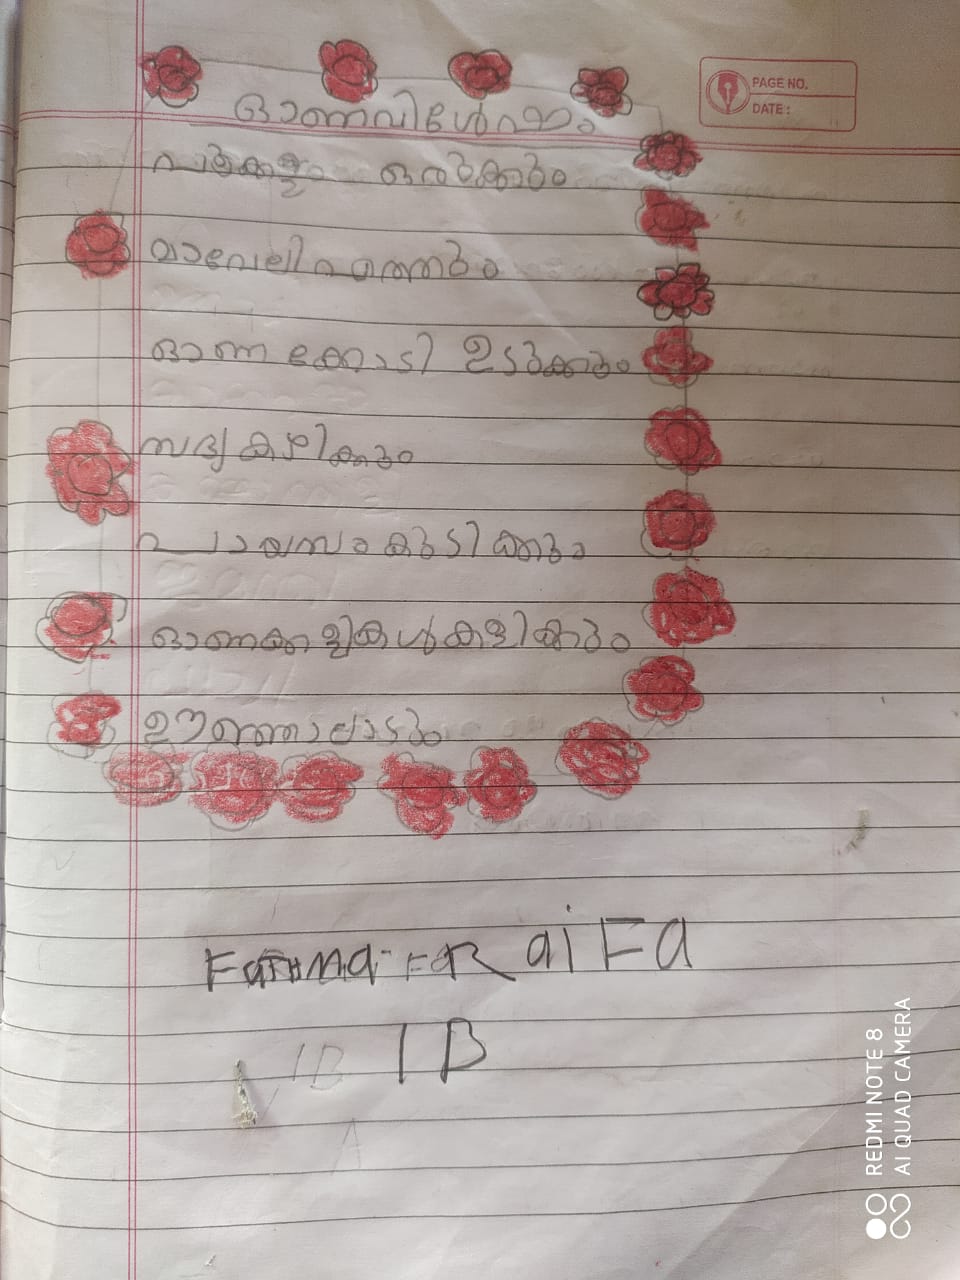 PAGE NO.
DATE:
ഓണവിശേഷം
പൂക്കളം ഒരുക്കും
മാവേലി എത്തും
ഓണക്കോടി ഉടുക്കും
സദ്യ കഴിക്കും
പായസം കുടിക്കും
ഓണക്കളികൾ കളിക്കും
ഊഞ്ഞാലാടും
Fatima
1B 1B
A
REDMI NOTE 8
AI QUAD CAMERA